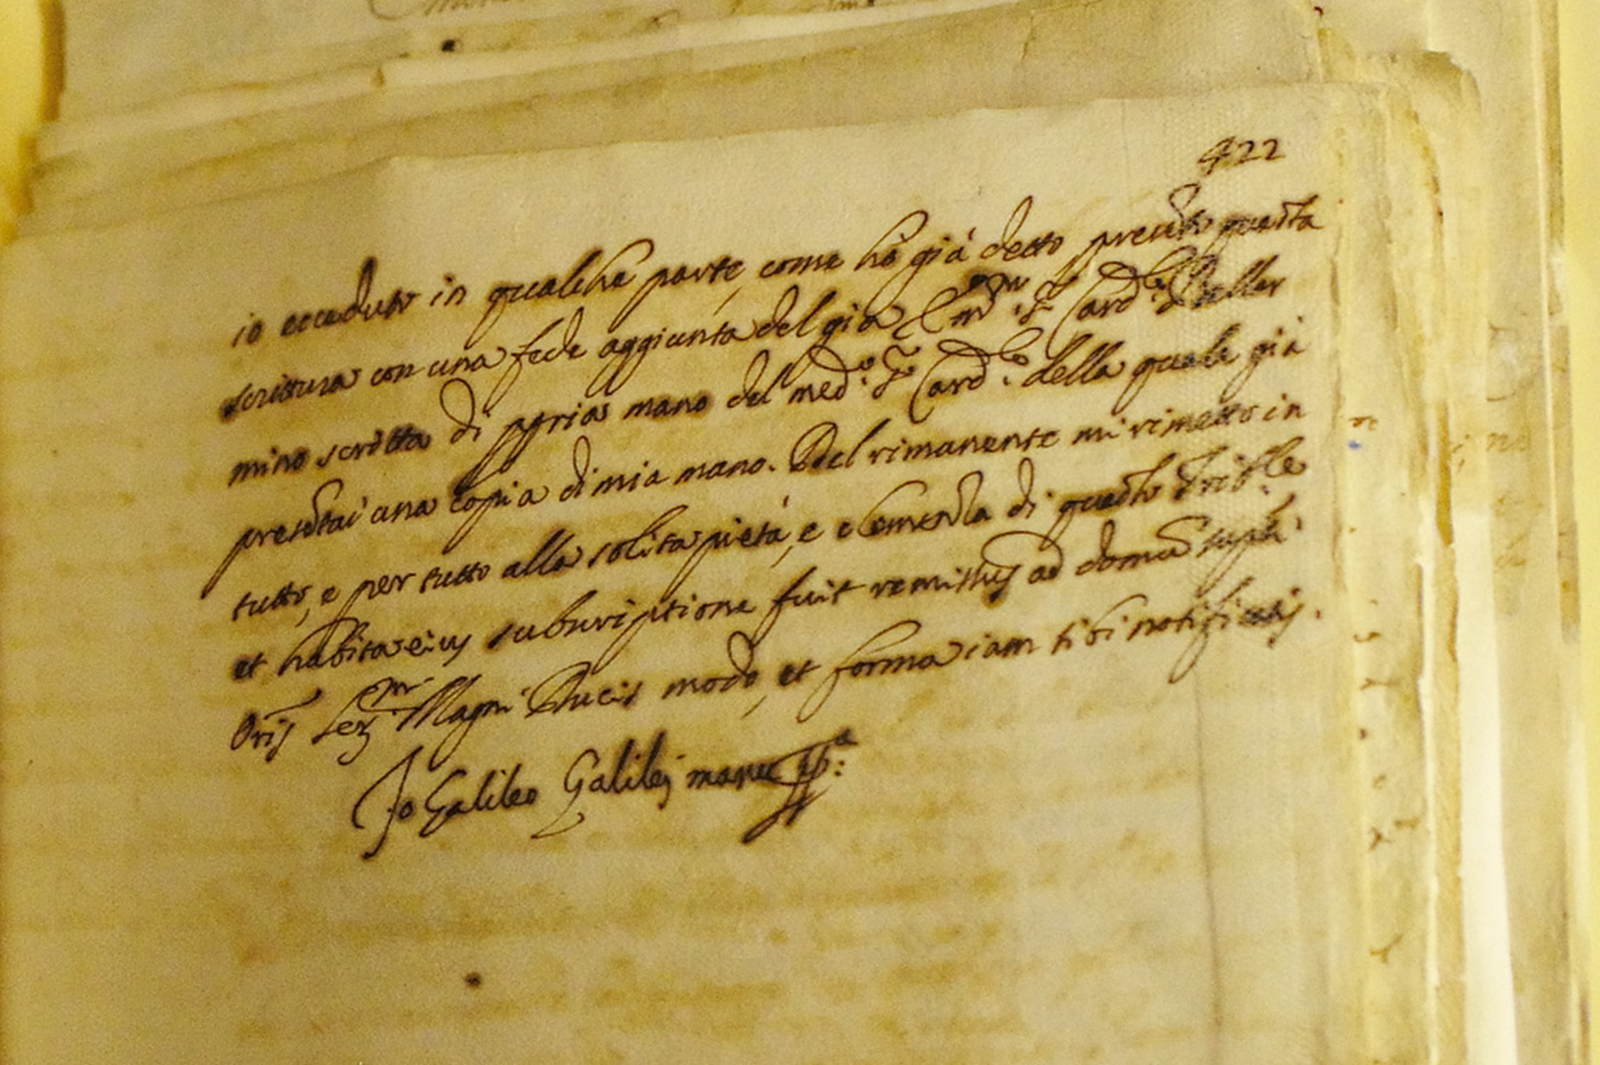 422
io ecceduto in qualche parte, come hò già detto presento questa
scrittura con una fede aggiunta del già Em.mo S.r Card.le Beller
mino scritta di ppria mano del med.o S.r Card.le della quale già
presentai una copia di mia mano. Del rimanente mi rimetto in
tutto, e per tutto alla solita pietà, e clemenza di questo Trib.le
et habita eius subscriptione fuit remissus ad domum supra
Oris Ser.mi Magni Ducis modo, et forma iam sibi notificatis.
Io Galileo Galilei manu pp.a